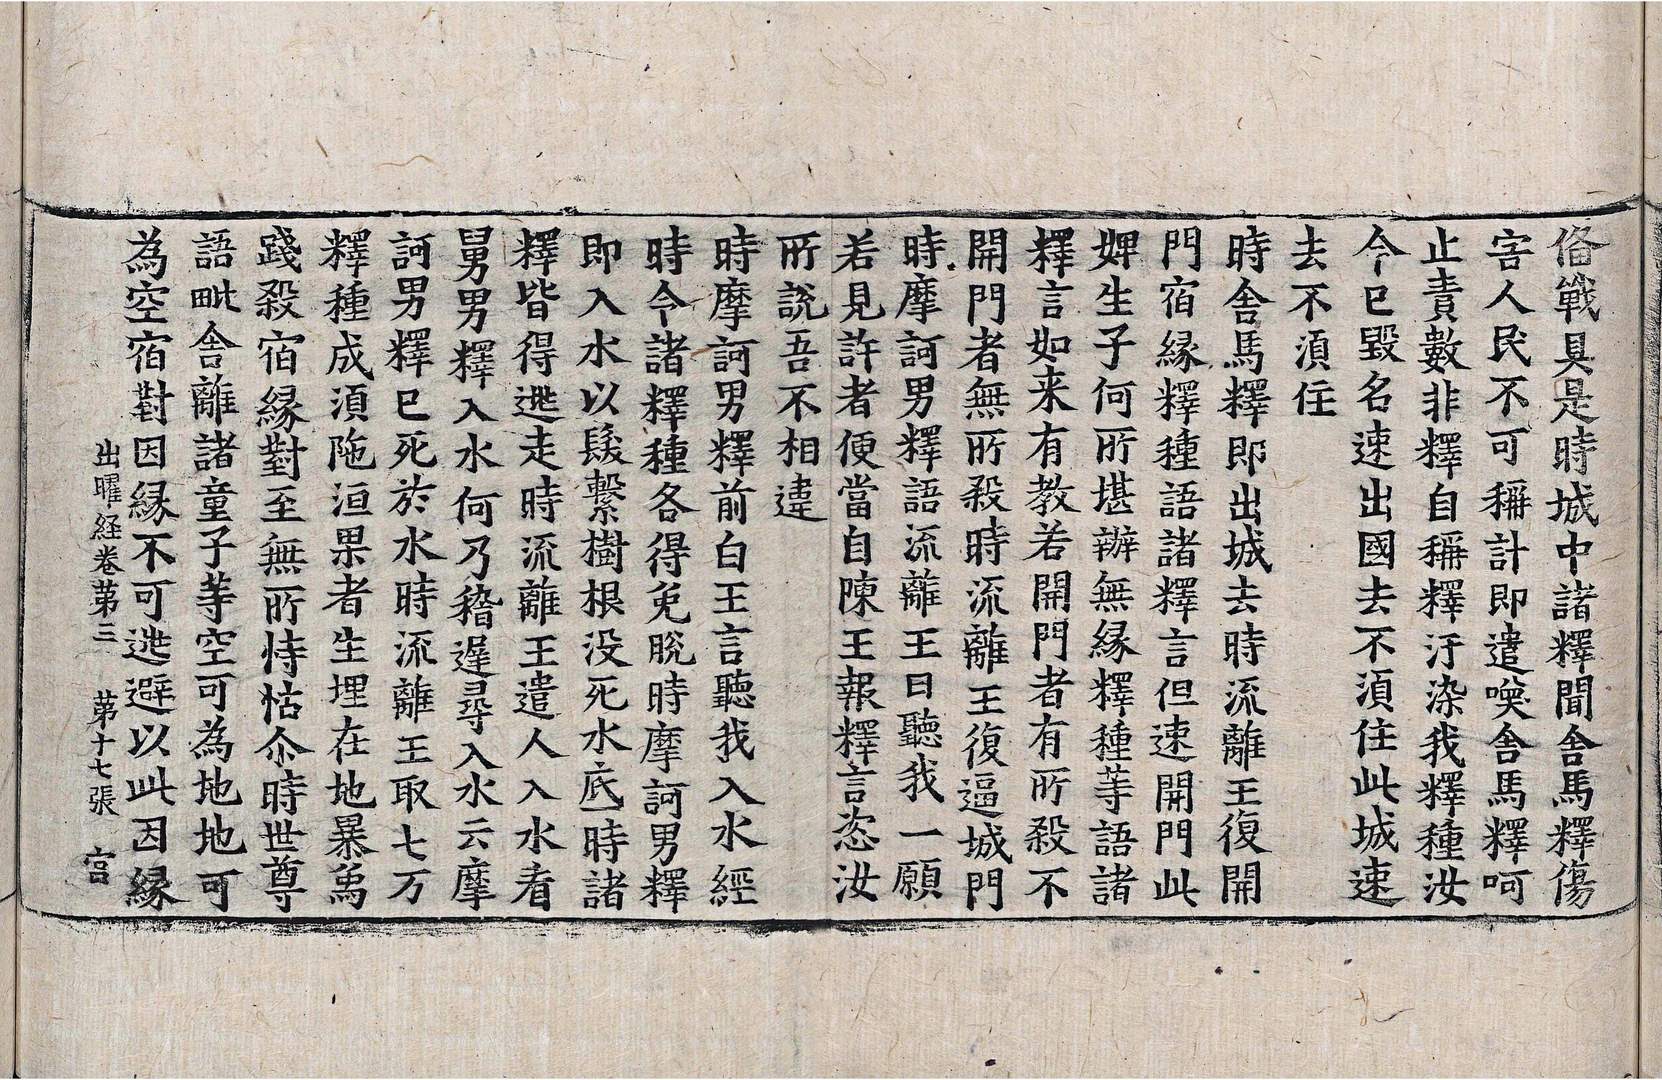 俻戰具是時城中諸釋聞舎馬釋傷
害人民不可稱計即遣喚舎馬釋呵
止責數非釋自稱釋汙染我釋種汝
今已毀名速出國去不湏住此城速
去不湏住
時舎馬釋即出城去時流離王復開
門宿縁釋種語諸釋言但速開門此
婢生子何所堪辦無縁釋種等語諸
釋言如来有教若開門者有所殺不
開門者無所殺時流離王復逼城門
時摩訶男釋語流離王曰聽我一願
若見許者便當自陳王報釋言恣汝
所說吾不相違
時摩訶男釋前白王言聽我入水經
時令諸釋種各得免脫時摩訶男釋
即入水以髮繫樹根没死水底時諸
釋皆得逃走時流離王遣人入水看
舅男釋入水何乃稽遲尋入水云摩
訶男釋已死於水時流離王取七万
釋種成湏陁洹果者生埋在地暴象
踐殺宿縁對至無所恃怙尒時世尊
語毗舎離諸童子等空可為地地可
為空宿對因縁不可逃避以此因縁
出曜経卷苐三 苐十七張 宫